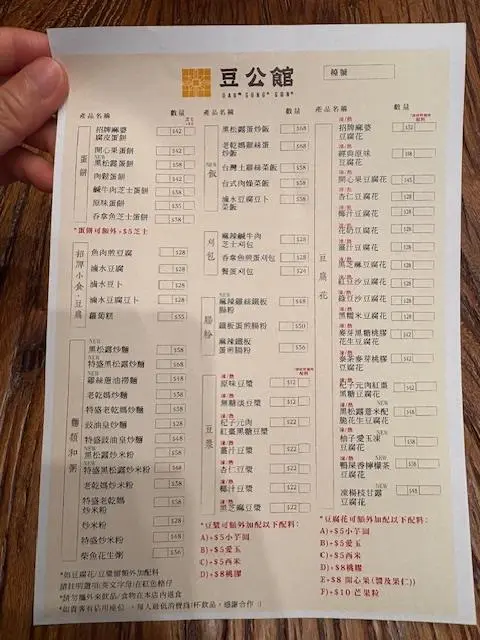 豆公館
DAU GONG GUN
檯號
產品名稱 數量
蛋餅
招牌麻婆
腐皮蛋餅 $42
開心果蛋餅 $42
NEW
黑松露蛋餅 $58
肉鬆蛋餅 $42
鹹牛肉芝士蛋餅 $38
原味蛋餅 $35
吞拿魚芝士蛋餅 $38
*蛋餅可額外+$5芝士
招牌小食·豆腐
魚肉煎豆腐 $28
滷水豆腐 $28
滷水豆卜 $28
滷水豆腐豆卜 $28
蘿蔔糕 $35
麵類和粥
NEW
黑松露炒麵 $58
NEW
特盛黑松露炒麵 $68
雞絲蔥油撈麵 $48
老乾媽炒麵 $38
特盛老乾媽炒麵 $58
豉油皇炒麵 $28
特盛豉油皇炒麵 $48
NEW
黑松露炒米粉 $58
NEW
特盛黑松露炒米粉 $68
老乾媽炒米粉 $38
特盛老乾媽
炒米粉 $58
炒米粉 $28
特盛炒米粉 $48
柴魚花生粥 $36
*如豆腐花/豆漿需額外加配料
請註明選項(英文字母)在紅色格仔
*請勿攜外來飲品/食物在本店內進食
產品名稱 數量
飯
黑松露蛋炒飯 $68
老乾媽雞絲蛋
炒飯 $68
台灣土雞絲菜飯 $58
台式肉燥菜飯 $58
滷水豆腐豆卜
菜飯 $38
刈包
麻辣鹹牛肉
芝士刈包 $28
吞拿魚煎蛋刈包 $28
蟹蛋刈包 $24
腸粉
NEW
麻辣雞絲鐵板
腸粉 $48
鐵板蛋煎腸粉 $50
麻辣鐵板
蛋煎腸粉 $56
豆漿
凍/熱
原味豆漿 $12
凍/熱
無糖淡豆漿 $12
凍/熱
杞子元肉
紅棗黑糖豆漿
凍/熱
薑汁豆漿 $22
凍/熱
杏仁豆漿 $22
凍/熱
椰汁豆漿 $22
凍/熱
黑芝麻豆漿 $22
*豆漿可額外加配以下配料:
A)+$5小芋圓
B)+$5愛玉
C)+$5西米
D)+$8桃膠
產品名稱 數量
豆腐花
凍/熱
招牌麻婆
豆腐花
凍/熱
經典原味
豆腐花
凍/熱
開心果豆腐花
凍/熱
杏仁豆腐花 $28
凍/熱
椰汁豆腐花 $28
凍/熱
花奶豆腐花 $28
凍/熱
薑汁豆腐花 $28
凍/熱
黑芝麻豆腐花 $28
凍/熱
紅豆沙豆腐花 $28
凍/熱
綠豆沙豆腐花 $28
凍/熱
黑糯米豆腐花 $28
凍/熱
麥芽黑糖桃膠
花生豆腐花 $38
凍/熱
泰茶麥芽桃膠
豆腐花 $42
凍/熱
杞子元肉紅棗
黑糖豆腐花 $42
凍/熱 NEW
黑松露薏米配
脆花生豆腐花 $48
NEW
柚子愛玉凍
豆腐花 $38
NEW
鴨屎香檸檬茶
豆腐花 $38
NEW
凍楊枝甘露
豆腐花 $48
*豆腐花可額外加配以下配料:
A)+$5小芋圓
B)+$5愛玉
C)+$5西米
D)+$8桃膠
E)+$8 開心果(醬及果仁)
F)+$10 芒果粒